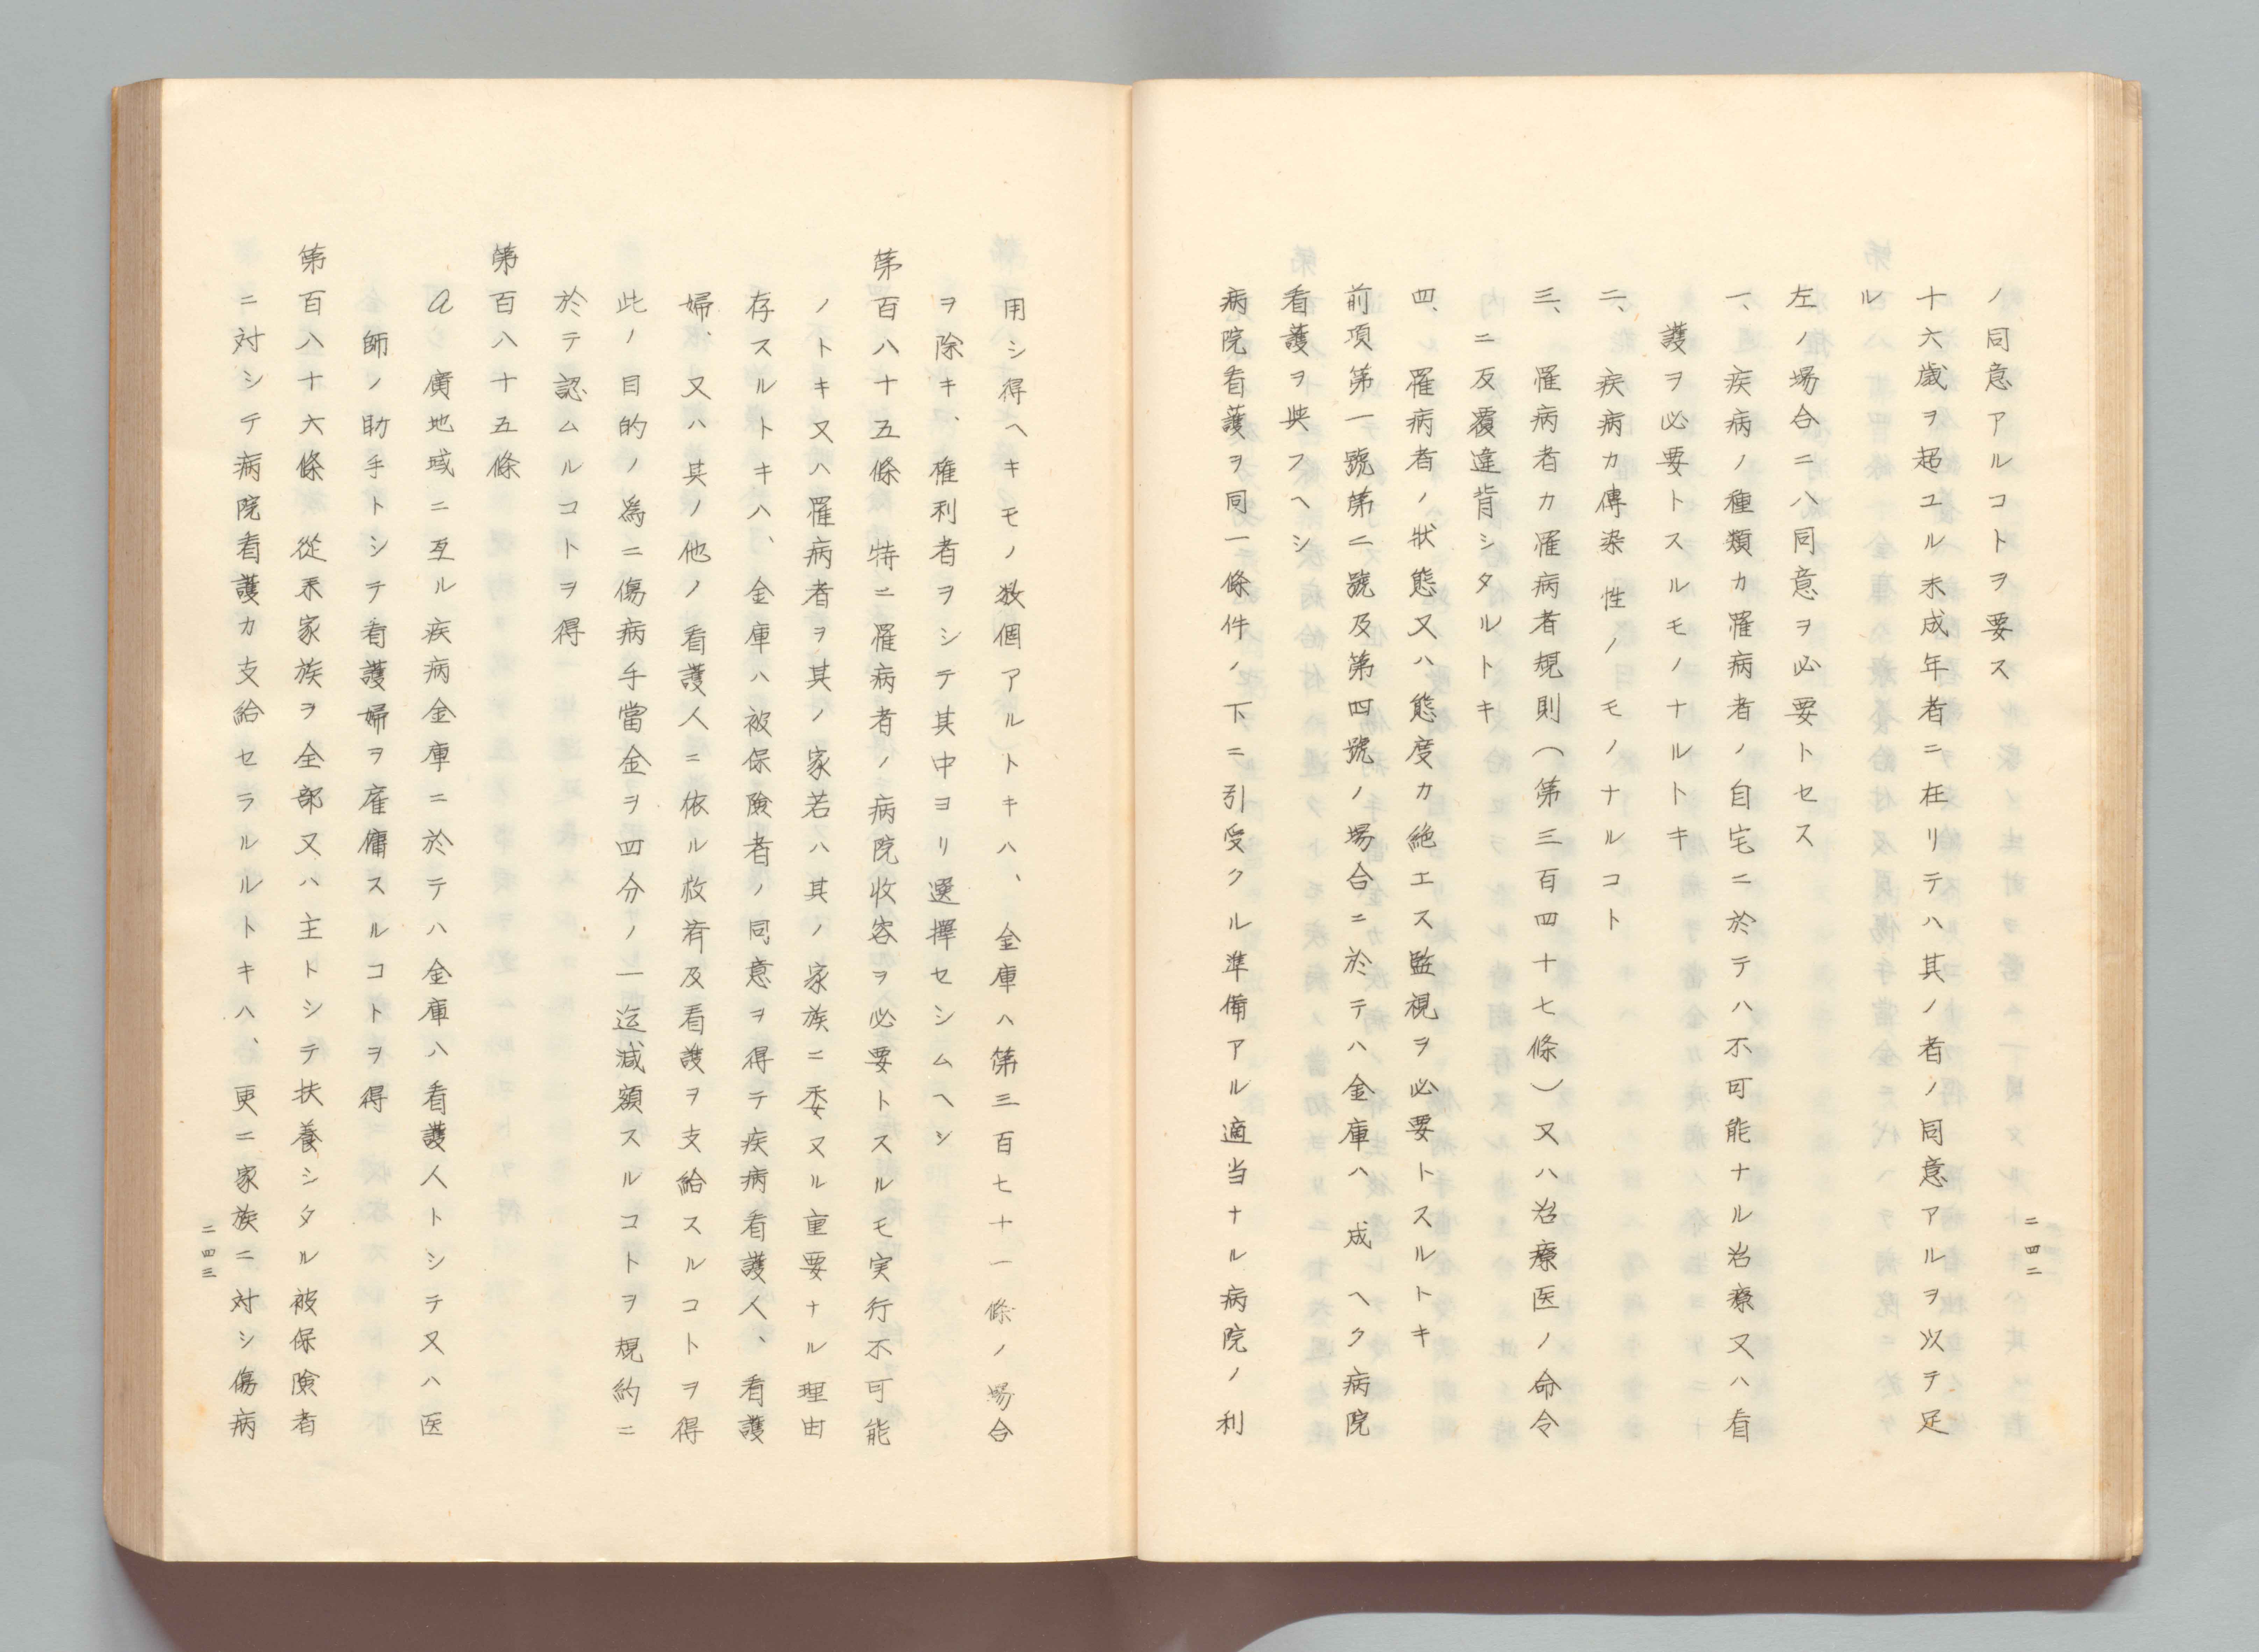 ノ同意アルコトヲ要ス
十六歳ヲ超ユル未成年者ニ在リテハ其ノ者ノ同意アルヲ以テ足
ル
左ノ場合ニハ同意ヲ必要トセス
一、疾病ノ種類カ罹病者ノ自宅ニ於テハ不可能ナル治療又ハ看
護ヲ必要トスルモノナルトキ
二、疾病カ傳染性ノモノナルコト
三、罹病者カ罹病者規則(第三百四十七條)又ハ治療医ノ命令
ニ反覆違背シタルトキ
四、罹病者ノ狀態又ハ態度カ絶エス監視ヲ必要トスルトキ
前項第一號第二號及第四號ノ場合ニ於テハ金庫ハ成ヘク病院
看護ヲ與フヘシ
病院看護ヲ同一條件ノ下ニ引受クル準備アル適当ナル病院ノ利
二四二
用シ得ヘキモノ数個アルトキハ、金庫ハ第三百七十一條ノ場合
ヲ除キ、権利者ヲシテ其中ヨリ選擇セシムヘシ
第百八十五條 特ニ罹病者ノ病院收容ヲ必要トスルモ実行不可能
ノトキ又ハ罹病者ヲ其ノ家若ハ其ノ家族ニ委ヌル重要ナル理由
存スルトキハ、金庫ハ被保険者ノ同意ヲ得テ疾病看護人、看護
婦、又ハ其ノ他ノ看護人ニ依ル救済及看護ヲ支給スルコトヲ得
此ノ目的ノ爲ニ傷病手當金ヲ四分ノ一迄減額スルコトヲ規約ニ
於テ認ムルコトヲ得
第百八十五條
a 廣地域ニ亙ル疾病金庫ニ於テハ金庫ハ看護人トシテ又ハ医
師ノ助手トシテ看護婦ヲ雇傭スルコトヲ得
第百八十六條 從来家族ヲ全部又ハ主トシテ扶養シタル被保険者
ニ対シテ病院看護カ支給セラルルトキハ、更ニ家族ニ対シ傷病
二四三